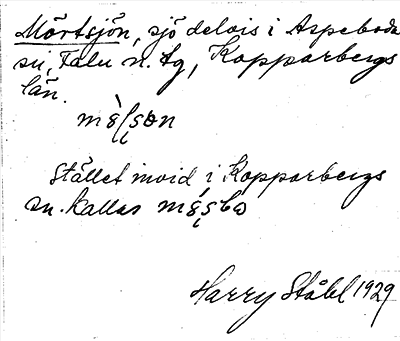 Mörtsjön, sjö delvis i Aspeboda
sn, Falu n. tg, Kopparbergs
län.
Stället invid i Kopparbergs
sn. kallas
Harry Ståhl 1929